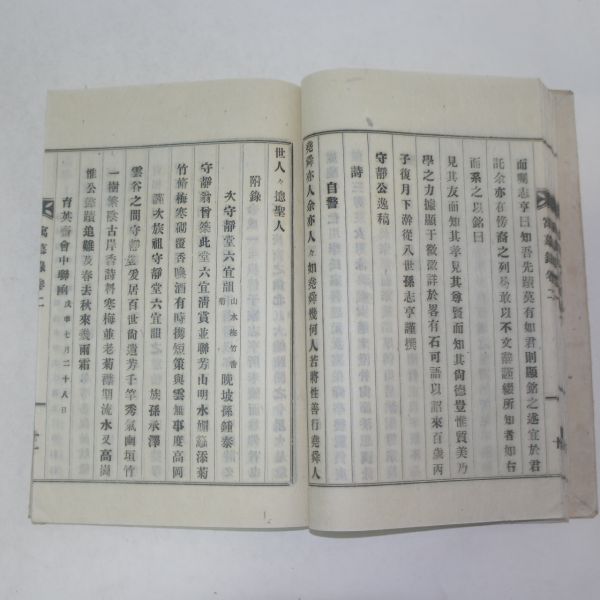 而囑志亨曰知吾先蹟莫有如君則顯銘之述宜於君
託余亦在傍裔之列易敢以不文辭謹纂所知者如右
而系之以銘曰
見其友而知其孝見其尊賢而知其尙德豈惟質美乃
學之力據顯于徵徵詳於畧有石可語以詔來百歲丙
子復月下澣從八世孫志亨謹撰
守靜公逸稿
詩
自警
堯舜亦人余亦人人々如堯舜幾何人若將性善行堯舜人
世人々遶聖人
附錄
次守靜堂六宜韻 山水梅竹香菊 晩坡孫鍾泰
守靜翁曾築此堂六宜淸賞並聯芳山明水媚簾添菊
竹脩梅寒潤覆香喚酒有時携短策與雲無事度高岡
謹次族祖守靜堂六宜韻 族孫承澤
雲谷之間守靜堂爰居百世尙遺芳千竿秀氣幽垣竹
一樹繁陰古岸香詩料寒梅並老菊襟期流水又高崗
惟公餘蹟追難及春去秋來幾雨霜
育英齋會中聯幽 戊申七月二十八日
寓慕錄卷二